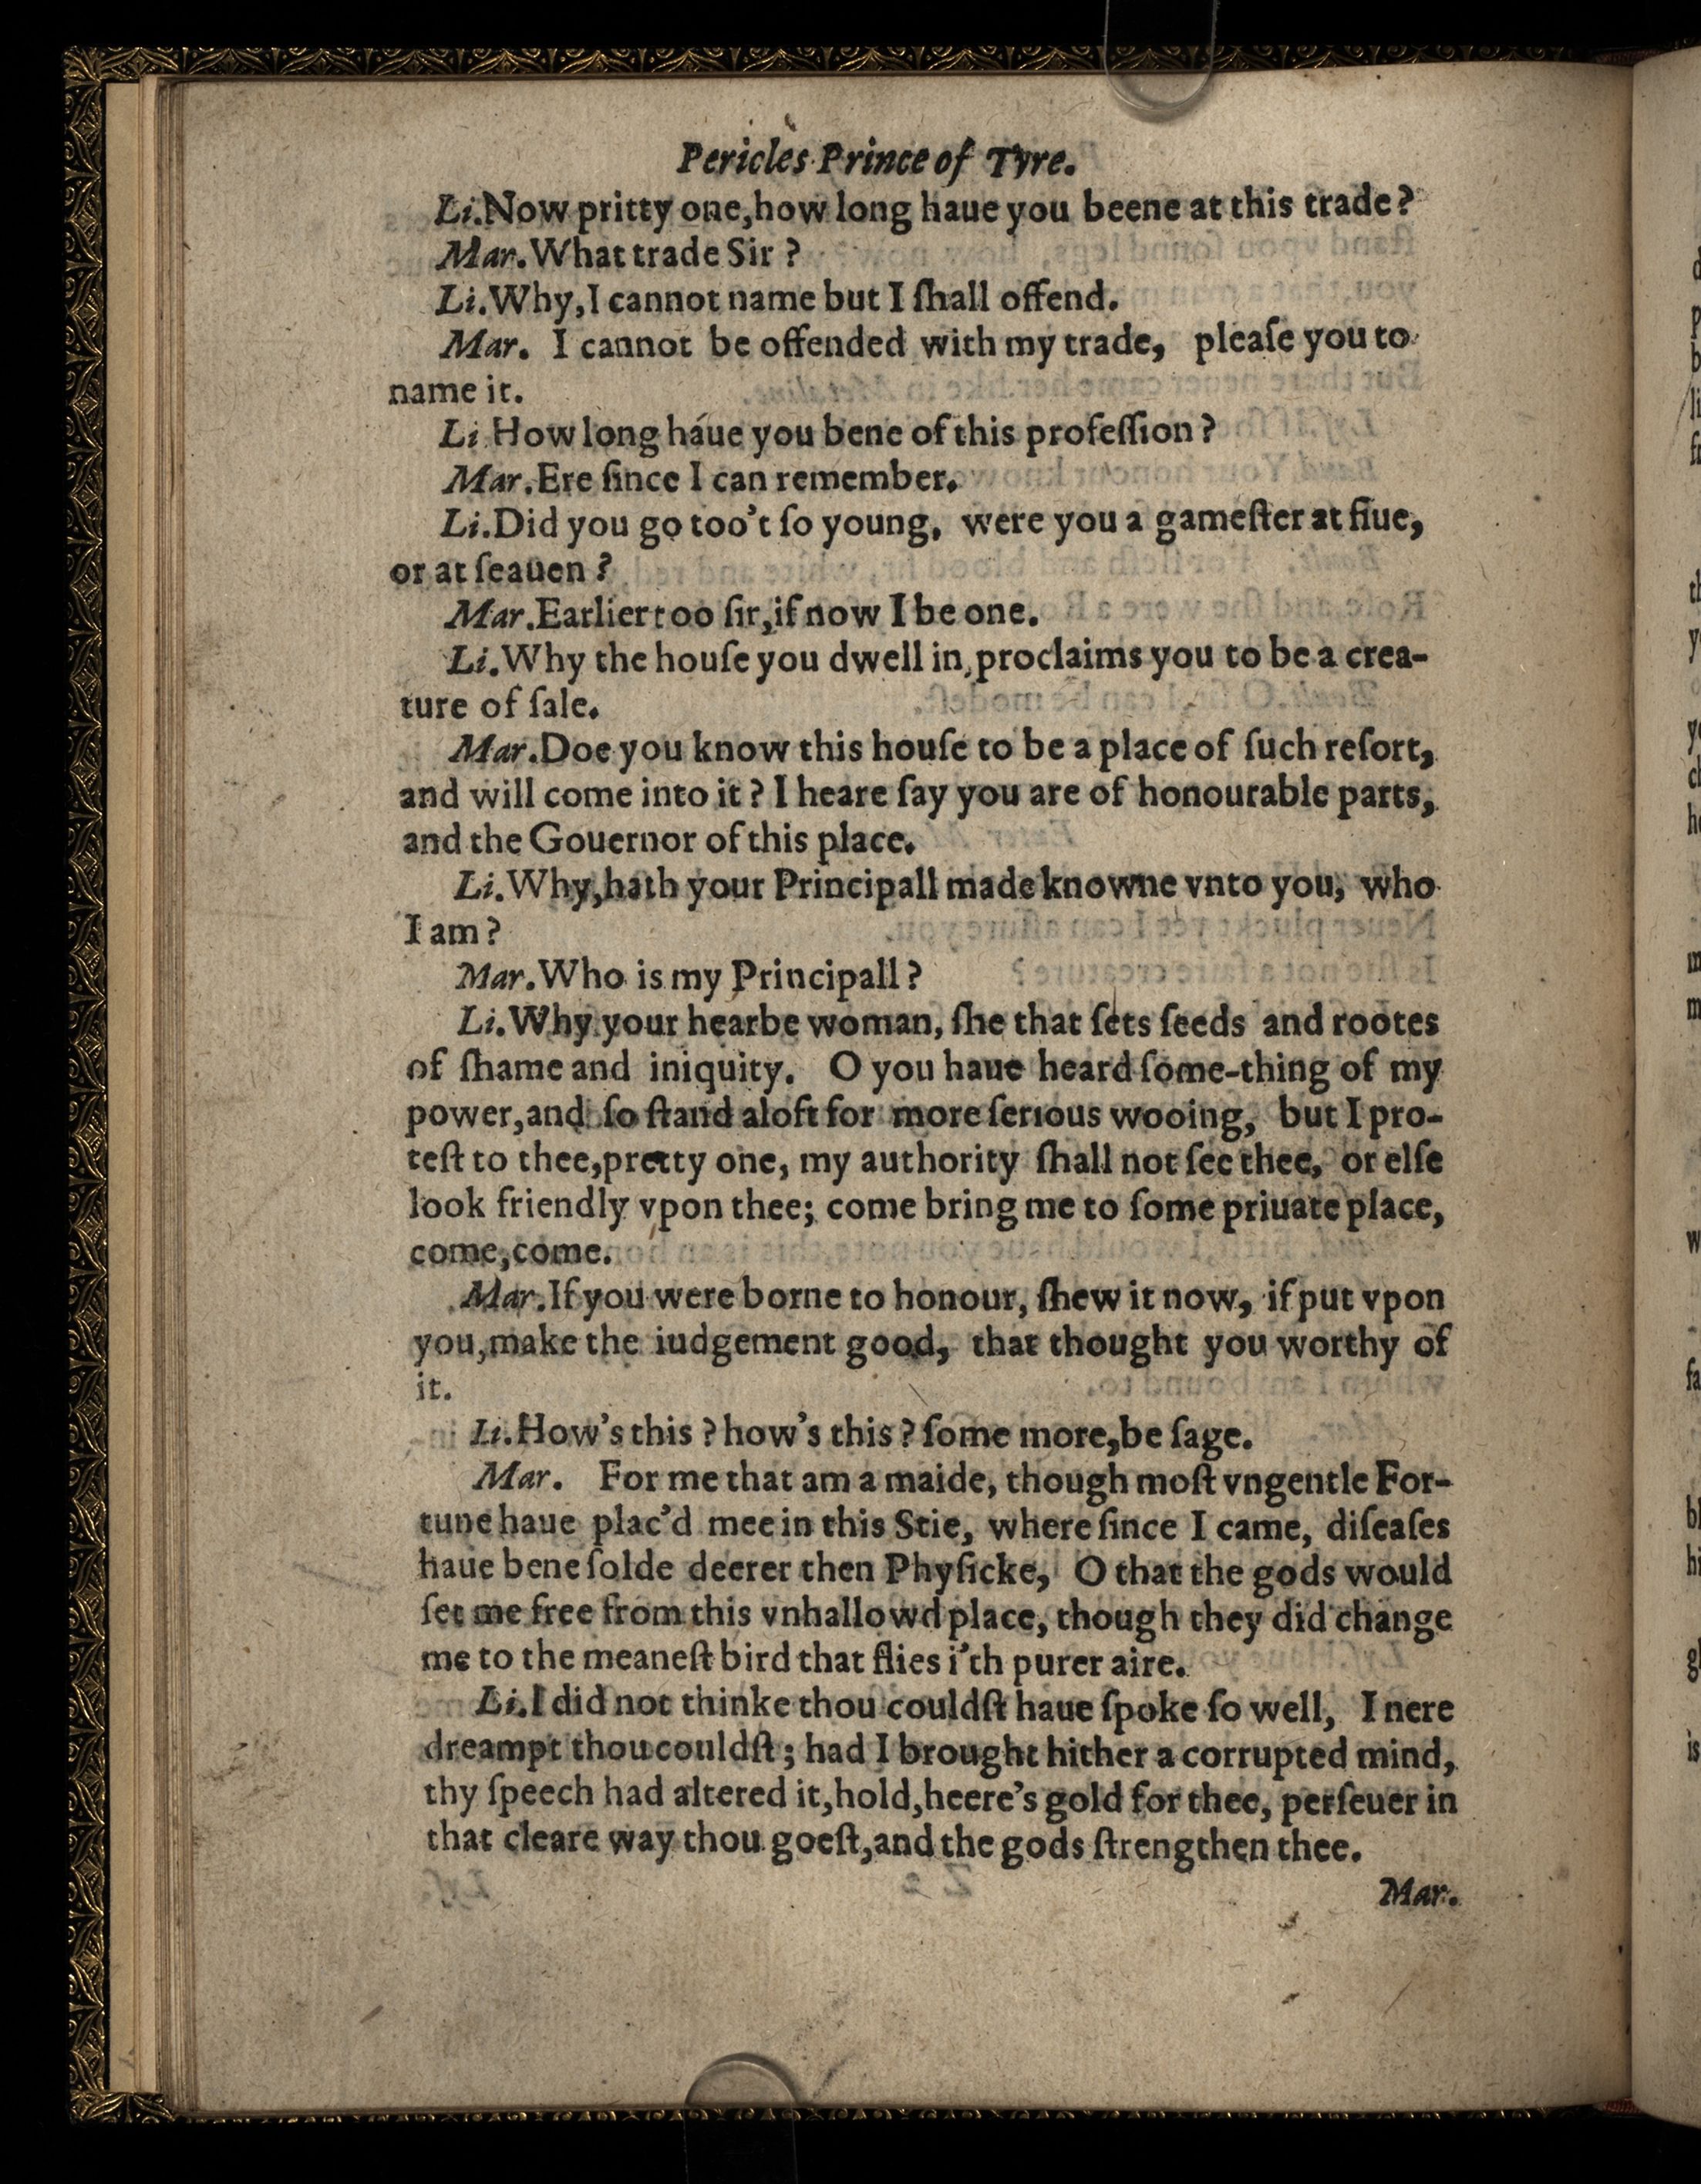 Pericles Prince of Tyre.
Li.Now pritty one,how long haue you beene at this trade?
Mar.What trade Sir ?
Li.Why,I cannot name but I ſhall offend.
Mar. I cannot be offended with my trade, pleaſe you to
name it.
Li How long háue you bene of this profeſſion?
Mar.Ere ſince I can remember.
Li.Did you go too't ſo young, were you a gameſter at fiue,
or at ſeauen?
Mar.Earlier too ſir,if now I be one.
Li.Why the houſe you dwell in,proclaims you to be a crea-
ture of ſale.
Mar.Doe you know this houſe to be a place of ſuch reſort,
and will come into it? I heare ſay you are of honourable parts,
and the Gouernor of this place.
Li.Why,hath your Principall made knowne vnto you, who
I am?
Mar.Who is my Principall?
Li.Why your hearbe woman, ſhe that ſets ſeeds and rootes
of ſhame and iniquity. O you haue heard ſome-thing of my
power,and ſo ſtand aloft for more ſerious wooing, but I pro-
teſt to thee,pretty one, my authority ſhall not ſee thee, or elſe
look friendly vpon thee; come bring me to ſome priuate place,
come,come.
Mar.If you were borne to honour, ſhew it now, if put vpon
you,make the iudgement good, that thought you worthy of
it.
Li.How's this ? how's this ? ſome more,be ſage.
Mar. For me that am a maide, though moſt vngentle For-
tune haue plac'd mee in this Stie, where ſince I came, diſeaſes
haue bene ſolde deerer then Phyſicke, O that the gods would
ſet me free from this vnhallowd place, though they did change
me to the meaneſt bird that flies i'th purer aire.
Li.I did not thinke thou couldſt haue ſpoke ſo well, I nere
dreampt thou couldſt; had I brought hither a corrupted mind,
thy ſpeech had altered it,hold,heere's gold for thee, perſeuer in
that cleare way thou goeſt,and the gods ſtrengthen thee.
Mar.